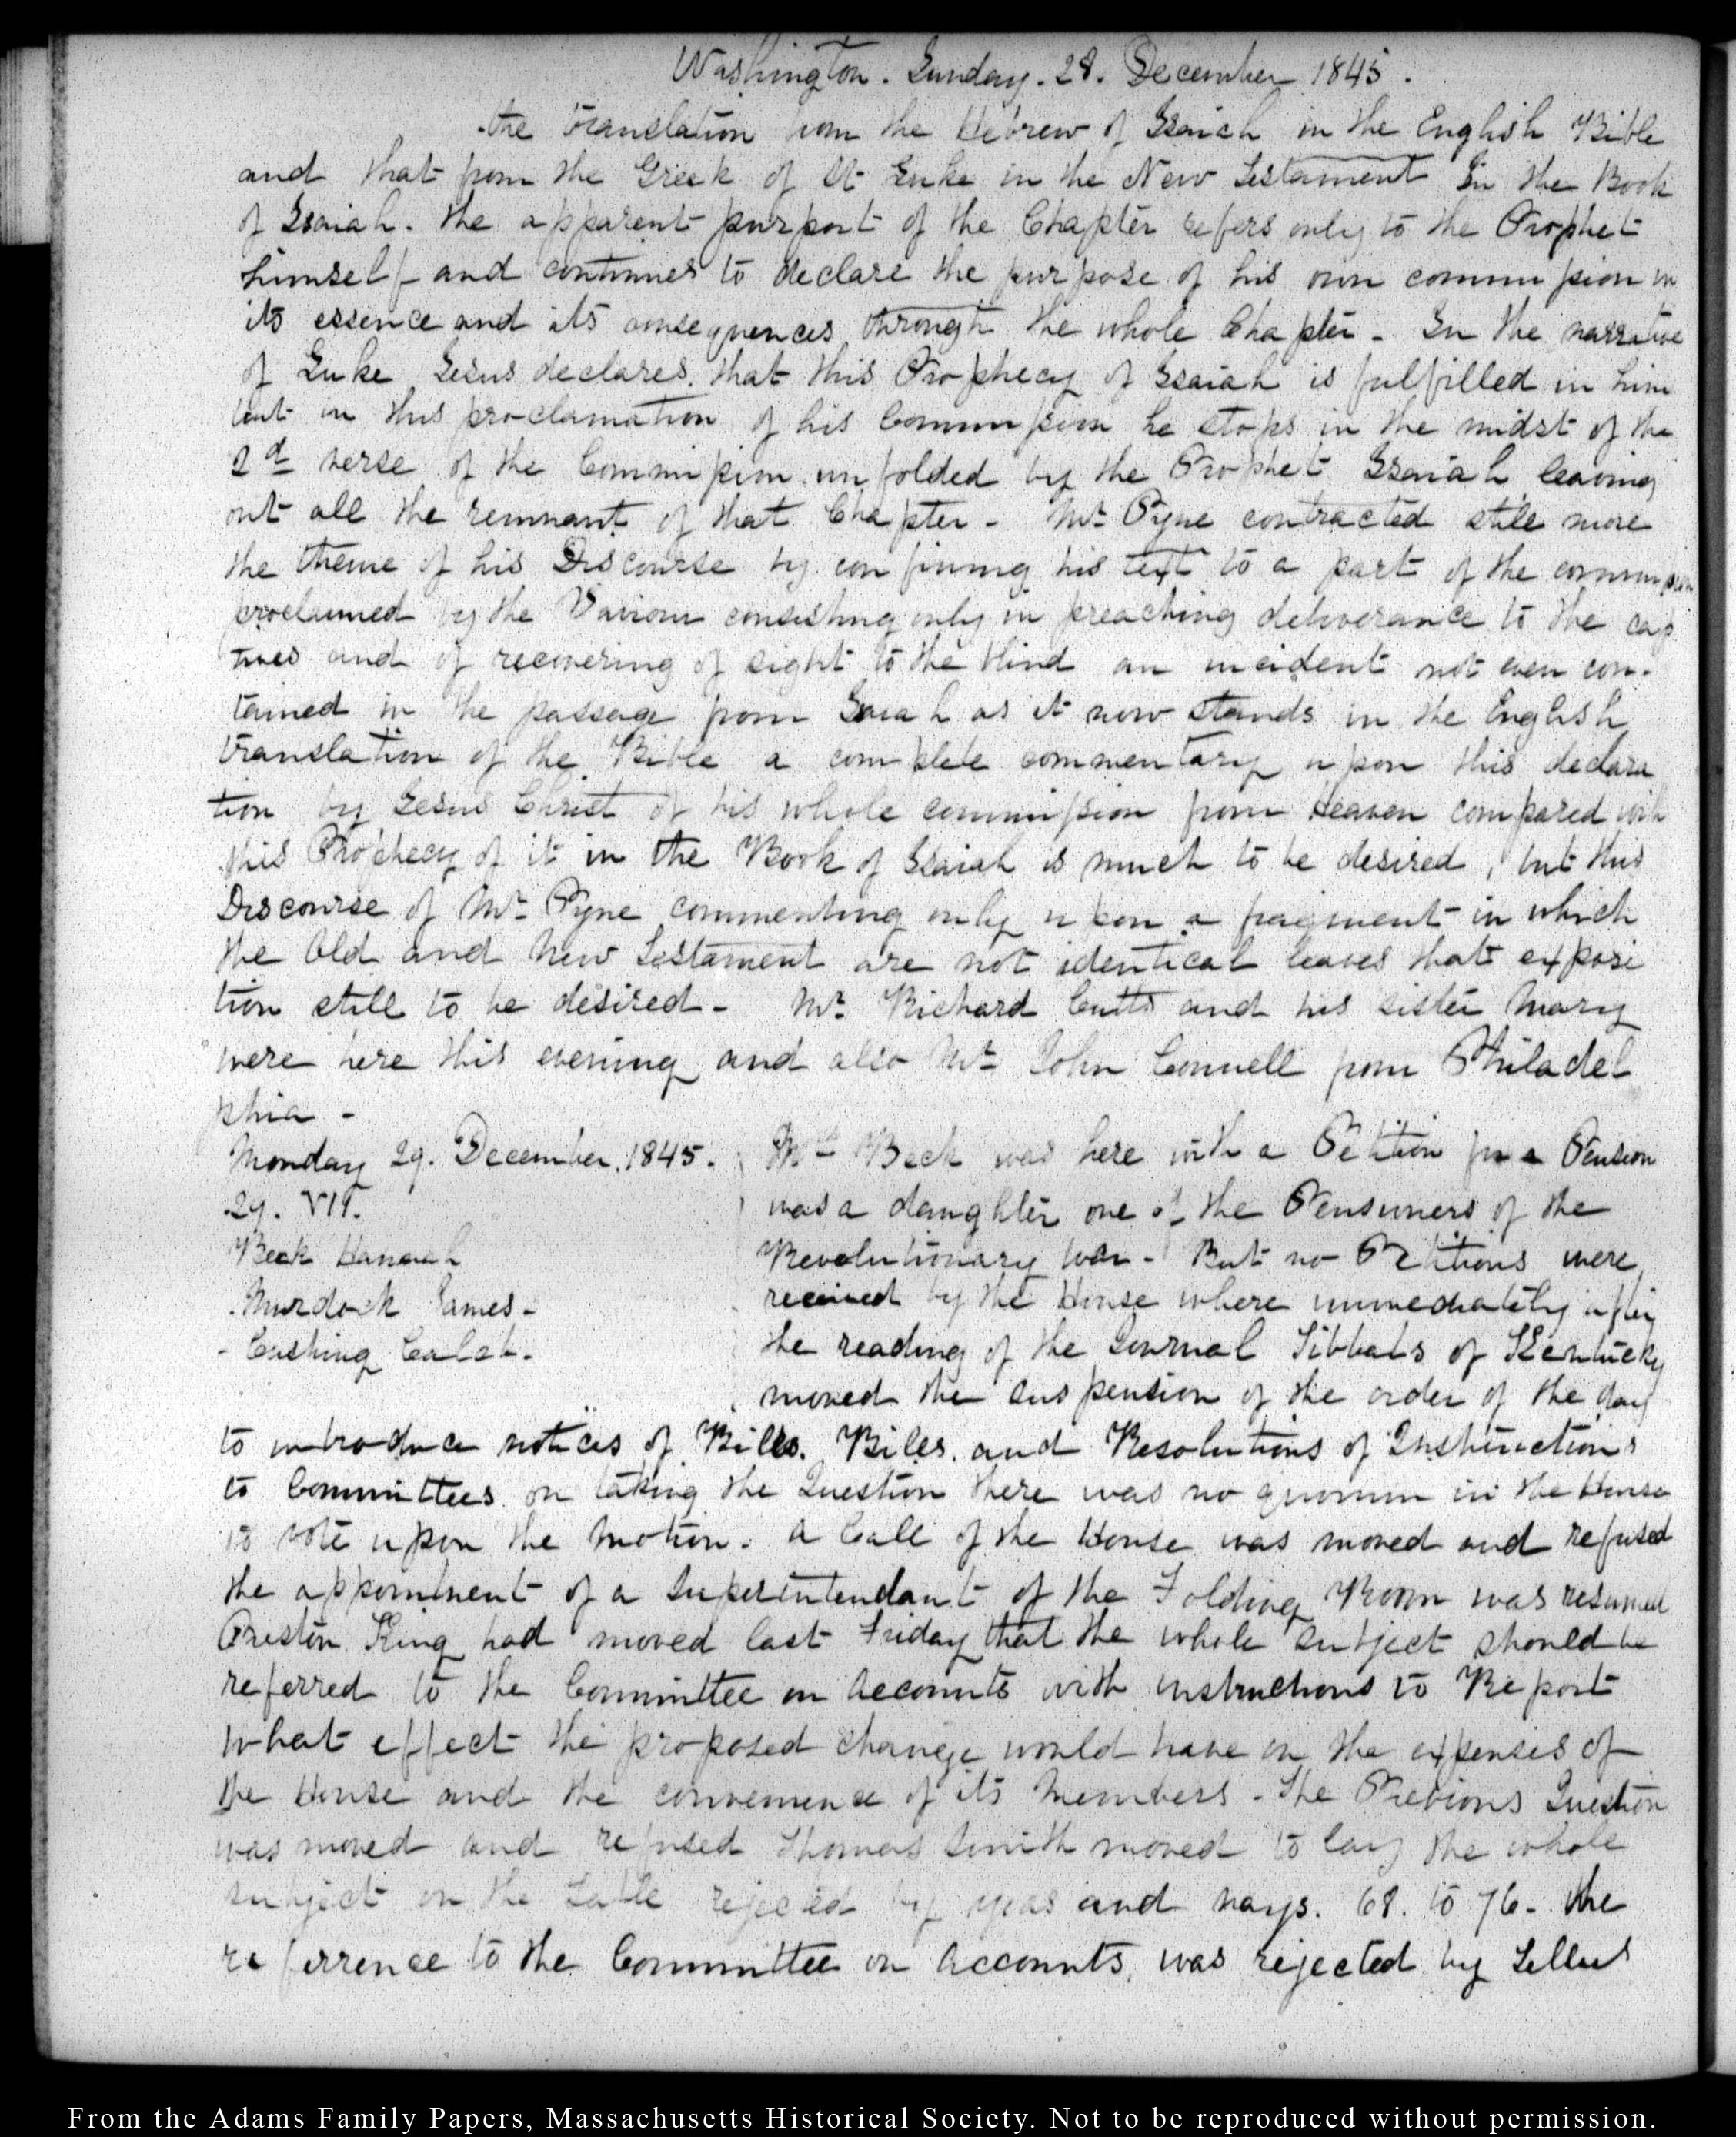 Washington. Sunday. 28. December 1845.
the translation from the Hebrew of Isaiah in the English Bible
and that from the Greek of St Luke in the New Testament In the Book
of Isaiah. the apparent purport of the Chapter refers only to the Prophet
himself and continues to declare the purpose of his own commission in
its essence and its consequences through the whole Chapter - In the narrative
of Luke Jesus declares that this Prophecy of Isaiah is fulfilled in him
but in this proclamation of his Commission he stops in the midst of the
2d verse of the Commission unfolded by the Prophet Isaiah leaving
out all the remnant of that Chapter - Mr Pyne contracted still more
the theme of his Discourse by confining his text to a part of the commission
proclaimed by the Saviour consisting only in preaching deliverance to the cap
tives and of recovering of sight to the blind an incident not even con-
tained in the passage from Isaiah as it now stands in the English
translation of the Bible a complete commentary upon this declara
tion by Jesus Christ of his whole commission from Heaven compared with
this Prophecy of it in the Book of Isaiah is much to be desired, but this
Discourse of Mr Pyne commenting only upon a fragment in which
the Old and New Testament are not identical leaves that exposi
tion still to be desired - Mr Richard Cutts and his sister Mary
were here this evening and also Mr John Connell from Philadel
phia -
Monday 29. December. 1845.
29. VII.
Beck Hannah
Murdock James -
- Cushing Caleb -
Beck was here with a Petition for a Pension
was a daughter one of the Pensioners of the
Revolutionary War - But no Petitions were
received by the House where immediately after
the reading of the Journal Tibbats of Kentucky
moved the suspension of the order of the day
to introduce notices of Bills. Bills. and Resolutions of Instructions
to Committees on taking the Question there was no quorum in the House
to vote upon the motion. A Call of the House was moved and refused
the appointment of a Superintendant of the Folding Room was resumed
Preston King had moved last Friday that the whole subject should be
referred to the Committee on Accounts with instructions to Report
what effect the proposed change would have on the expenses of
the House and the convenience of its Members - The Previous Question
was moved and refused Thomas Smith moved to lay the whole
subject on the table rejected by yeas and nays. 68. to 76 - the
referrence to the Committee on Accounts, was rejected by Tellers
From the Adams Family Papers, Massachusetts Historical Society. Not to be reproduced without permission.